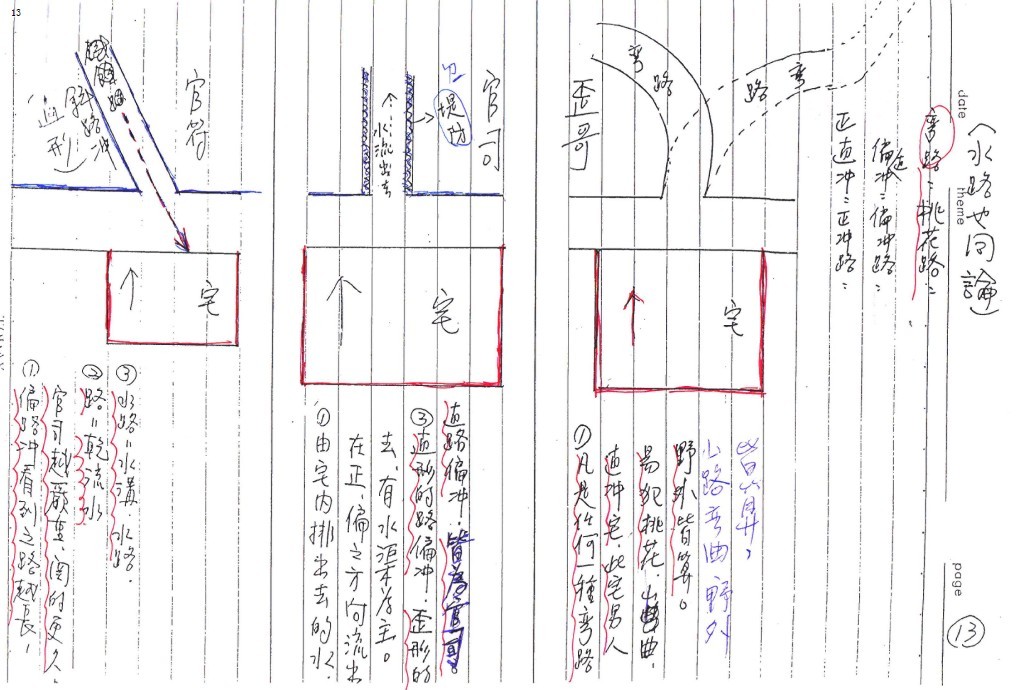 13
date
theme
page
⑬
(水路也同論)
弯路=桃花路=
偏冲=偏冲路=
正直冲=正冲路=
弯路
弯路
歪哥
宅
①凡是任何一種弯路
直冲宅,此宅男人
易犯桃花,
曲,
野外皆算。
小路弯曲野外
皆算,
官司
堤防
水流出去
宅
①由宅內排出去的水,
在正、偏之方向流出
去,有水渠為主。
③直形的路偏冲,歪形的
直路偏冲,皆為官司。
官符
路冲
宅
①偏路冲看到之路越長,
官司越嚴重,鬧的更久,
②路=乾流水
③水路=水溝,水路,